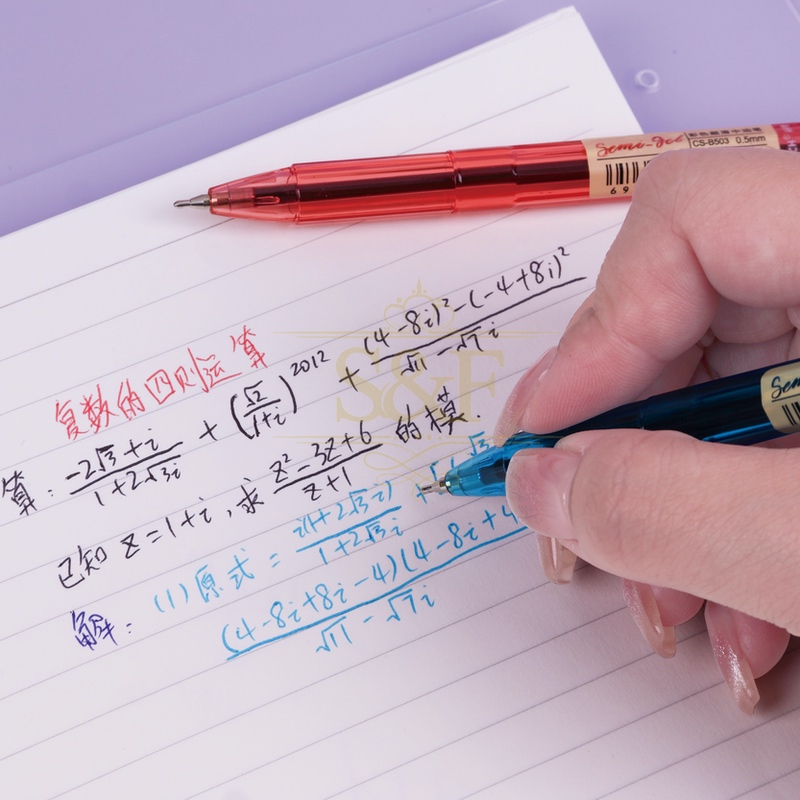 Semi-Gel
CS-B503 0.5mm
6 9
复数的四则运算
算: (-2√3+i)/(1+2√3i) + (√2/(1+i))^2012 + ((4-8i)²-(-4+8i)²)/(√11-√7i)
已知 z=1+i, 求 (z²-3z+6)/(z+1) 的模.
解: (1)原式 = i(1+2√3i)/(1+2√3i) +
(4-8i+8i-4)(4-8i+4
√11-√7i
Sem
S&F